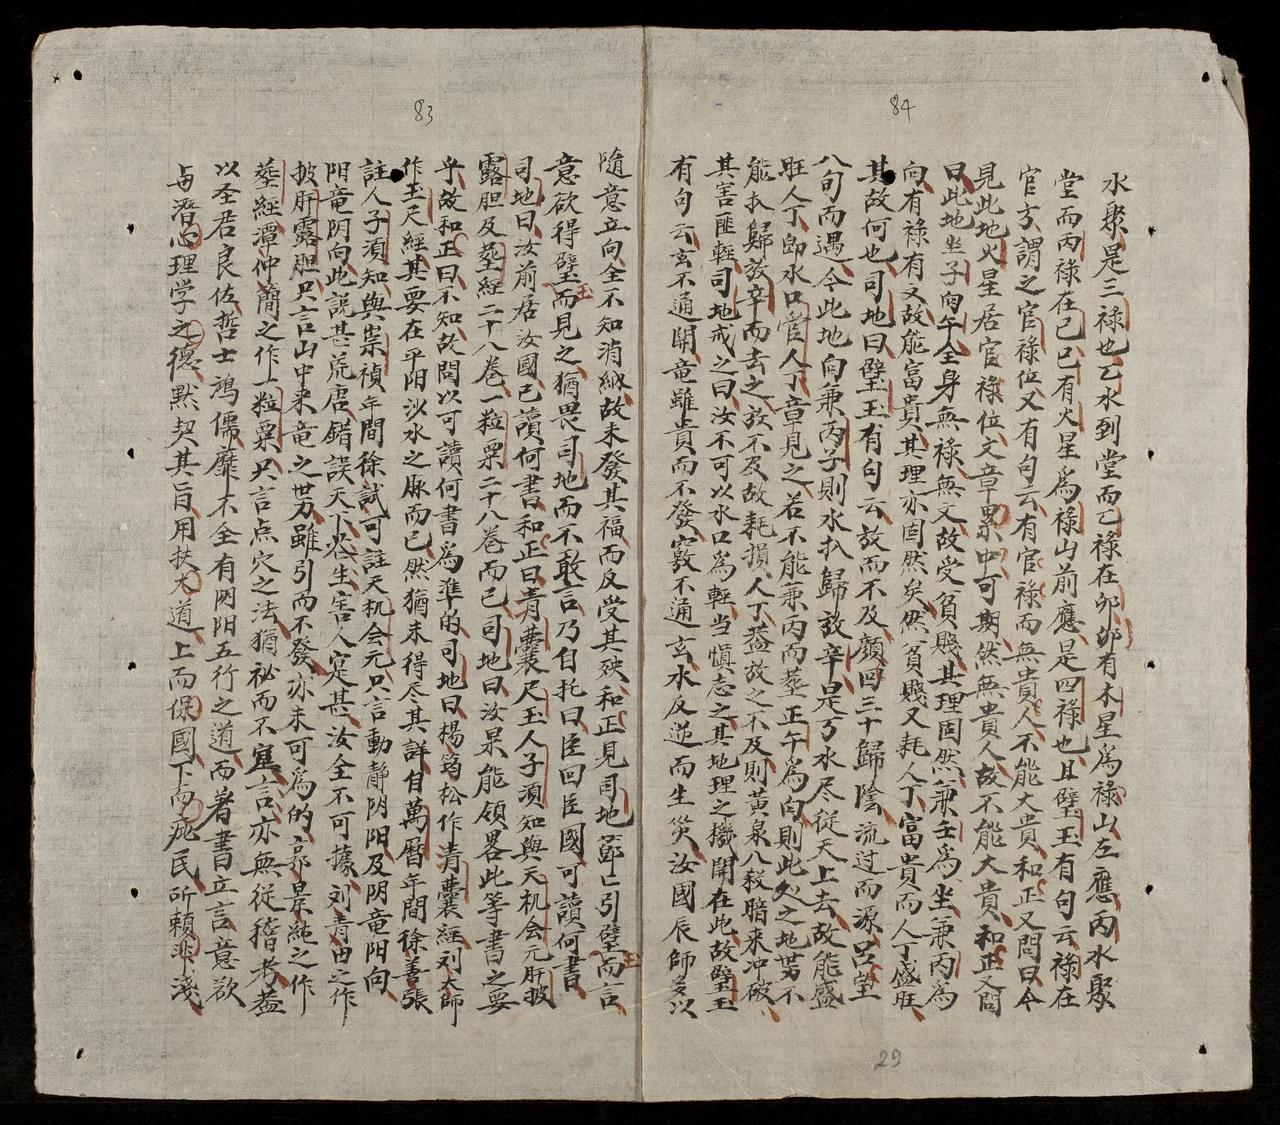 84
水聚是三祿也乙水到堂而乙祿在卯卯有木星爲祿山左應丙水聚
堂而丙祿在己巳有火星爲祿山前應是四祿也且璧玉有句云祿在
官方謂之官祿位又有句云有官祿而無貴人不能大貴和正又問曰今
見此地火星居官祿位文章累中可期然無貴人故不能大貴和正又問
曰此地坐子向午全身無祿無文故受貧賤其理固然兼壬爲坐兼丙爲
向有祿有文故能富貴其理亦固然矣然貧賤又耗人丁富貴而人丁盛旺
其故何也司地曰璧玉有句云放而不及顔回三十歸陰流过而源吕望
八旬而遇今此地向兼丙子則水扒歸放辛是丐水尽從天上去故能盛
旺人丁卽水口管人丁章見之若不能兼丙而塟正午爲向則此处之地势不
能扒歸放辛而去之放不及故耗損人丁葢放之不及則黃泉八殺暗来冲破
其害匪輕司地戒之曰汝不可以水口爲輕当愼志之其地理之機開在此故璧玉
有句云玄不通開竜雖貴而不發竅不通玄水反逆而生災汝國辰師多以
29
83
隨意立向全不知消納故未發其福而反受其殃和正見司地節亡引璧玉而言
意欲得璧玉而見之猶畏司地而不敢言乃自托曰臣回臣國可讀何書
司地曰汝前居汝國已讀何書和正曰青囊尺玉人子須知與天机会元肝披
露胆及塟經二十八卷一粒粟二十八卷而已司地曰汝果能領畧此等書之要
乎故和正曰不知故問以可讀何書爲準的司地曰楊筠松作青囊經刘大師
作玉尺經其要在平阳沙水之脉而已然猶未得尽其詳自萬曆年間徐善張
註人子須知與崇禎年間徐試可註天机会元只言動静阴阳及阴竜阳向
阳竜阴向此説甚荒唐錯誤天下蒼生害人寔甚汝全不可據刘青田之作
披肝露胆只言山中来竜之势雖引而不發亦未可爲的郭景純之作
塟經潭仲簡之作一粒粟只言点穴之法猶祕而不寔言亦無從稽考葢
以圣君良佐哲士鴻儒靡不全有阴阳五行之道而著書立言意欲
与濳心理学之德默契其旨用扶大道上而保國下而庇民所賴非淺